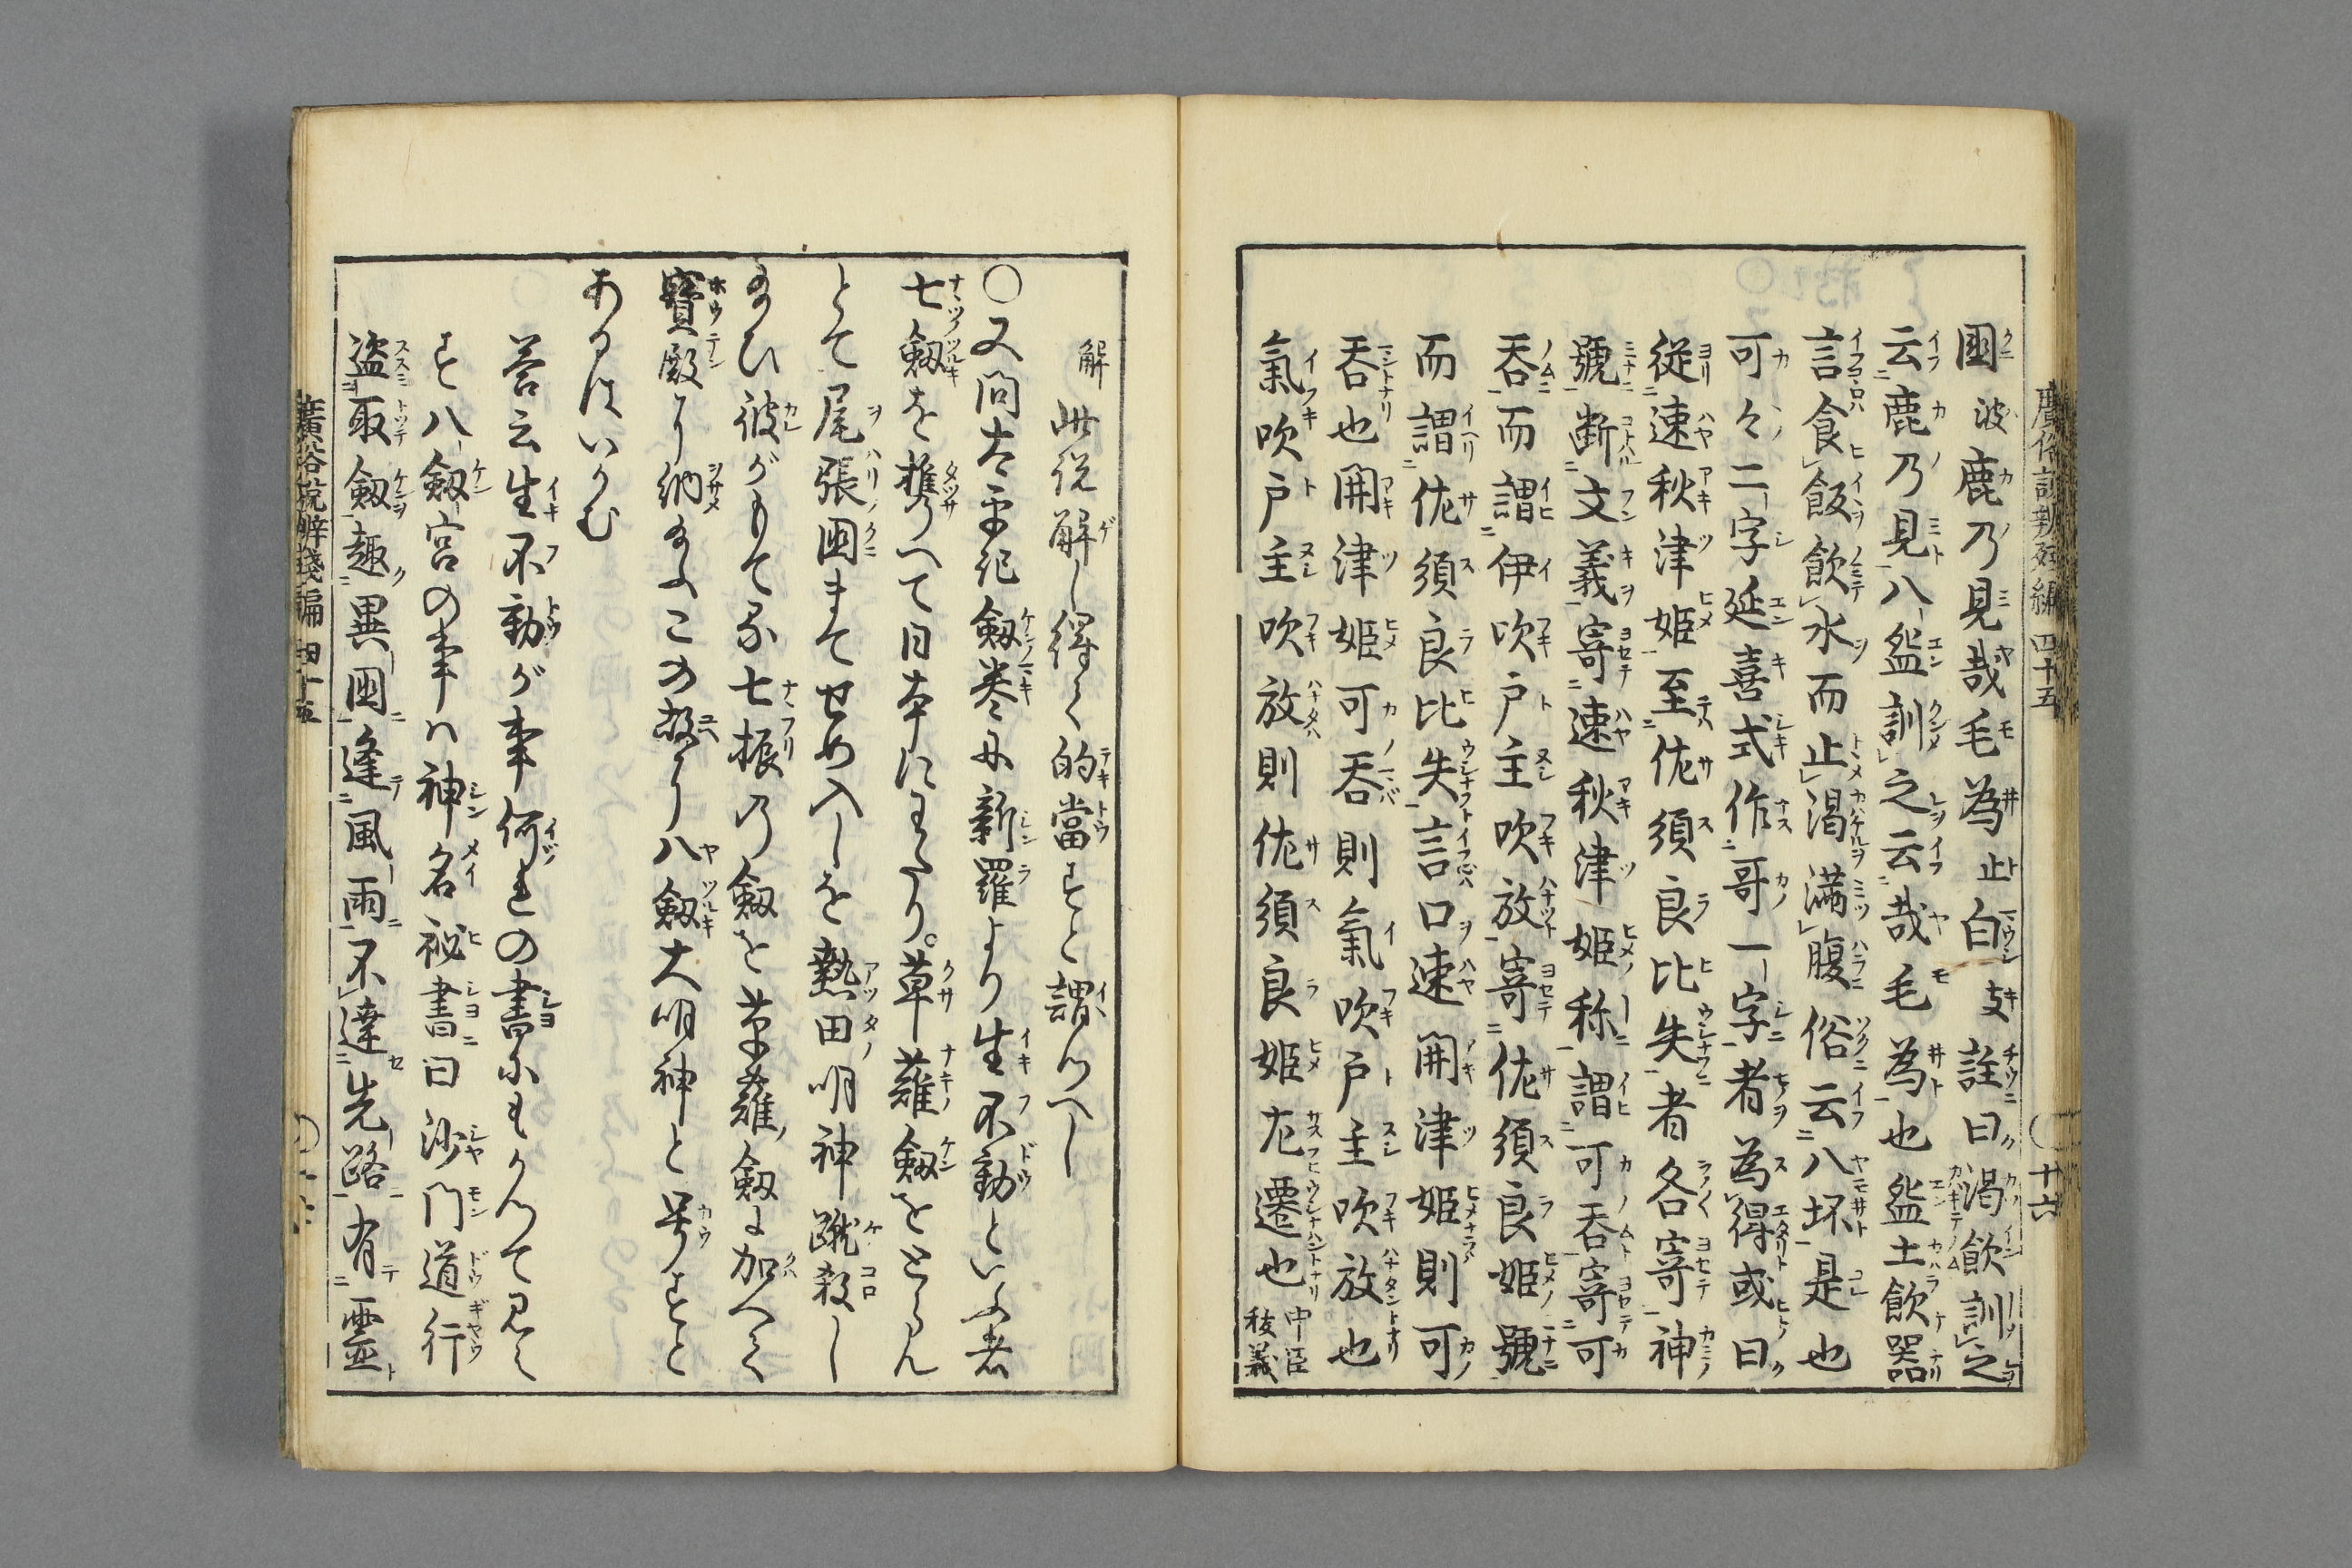 廣俗説辨殘編 四十五
十六
國波鹿乃見哉毛為止白支註曰渇飲訓之
云鹿乃見八盌訓之云哉毛為也盌土飲器
言食飯飲水而止渇満腹俗云八坏是也
可々二字延喜式作哥一字者為得或曰
従速秋津姫至佐須良比失者各寄神
號断文義寄速秋津姫称謂可呑寄可
呑而謂伊吹戸主吹放寄佐須良姫號
而謂佐須良比失言口速開津姫則可
呑也開津姫可呑則氣吹戸主吹放也
氣吹戸主吹放則佐須良姫左遷也中臣祓義
解此説解し得て的當すと謂つへし
〇又問太平記劔巻に新羅より生不動といふ者
七劔を携へて日本にわたり。草薙劔をとらん
とて尾張國まてせめ入しを熱田明神蹴殺し
給ひ彼がもてる七振の劔を草薙劔に加へて
寶殿に納給ふこの故に八劔大明神と号すと
あるはいかむ
答云生不動が事何れの書にもかつて見え
す八劔宮の事ハ神名秘書曰沙門道行
盗取劔趣異國逢風雨不達先路有霊
廣俗説辨殘編 四十五